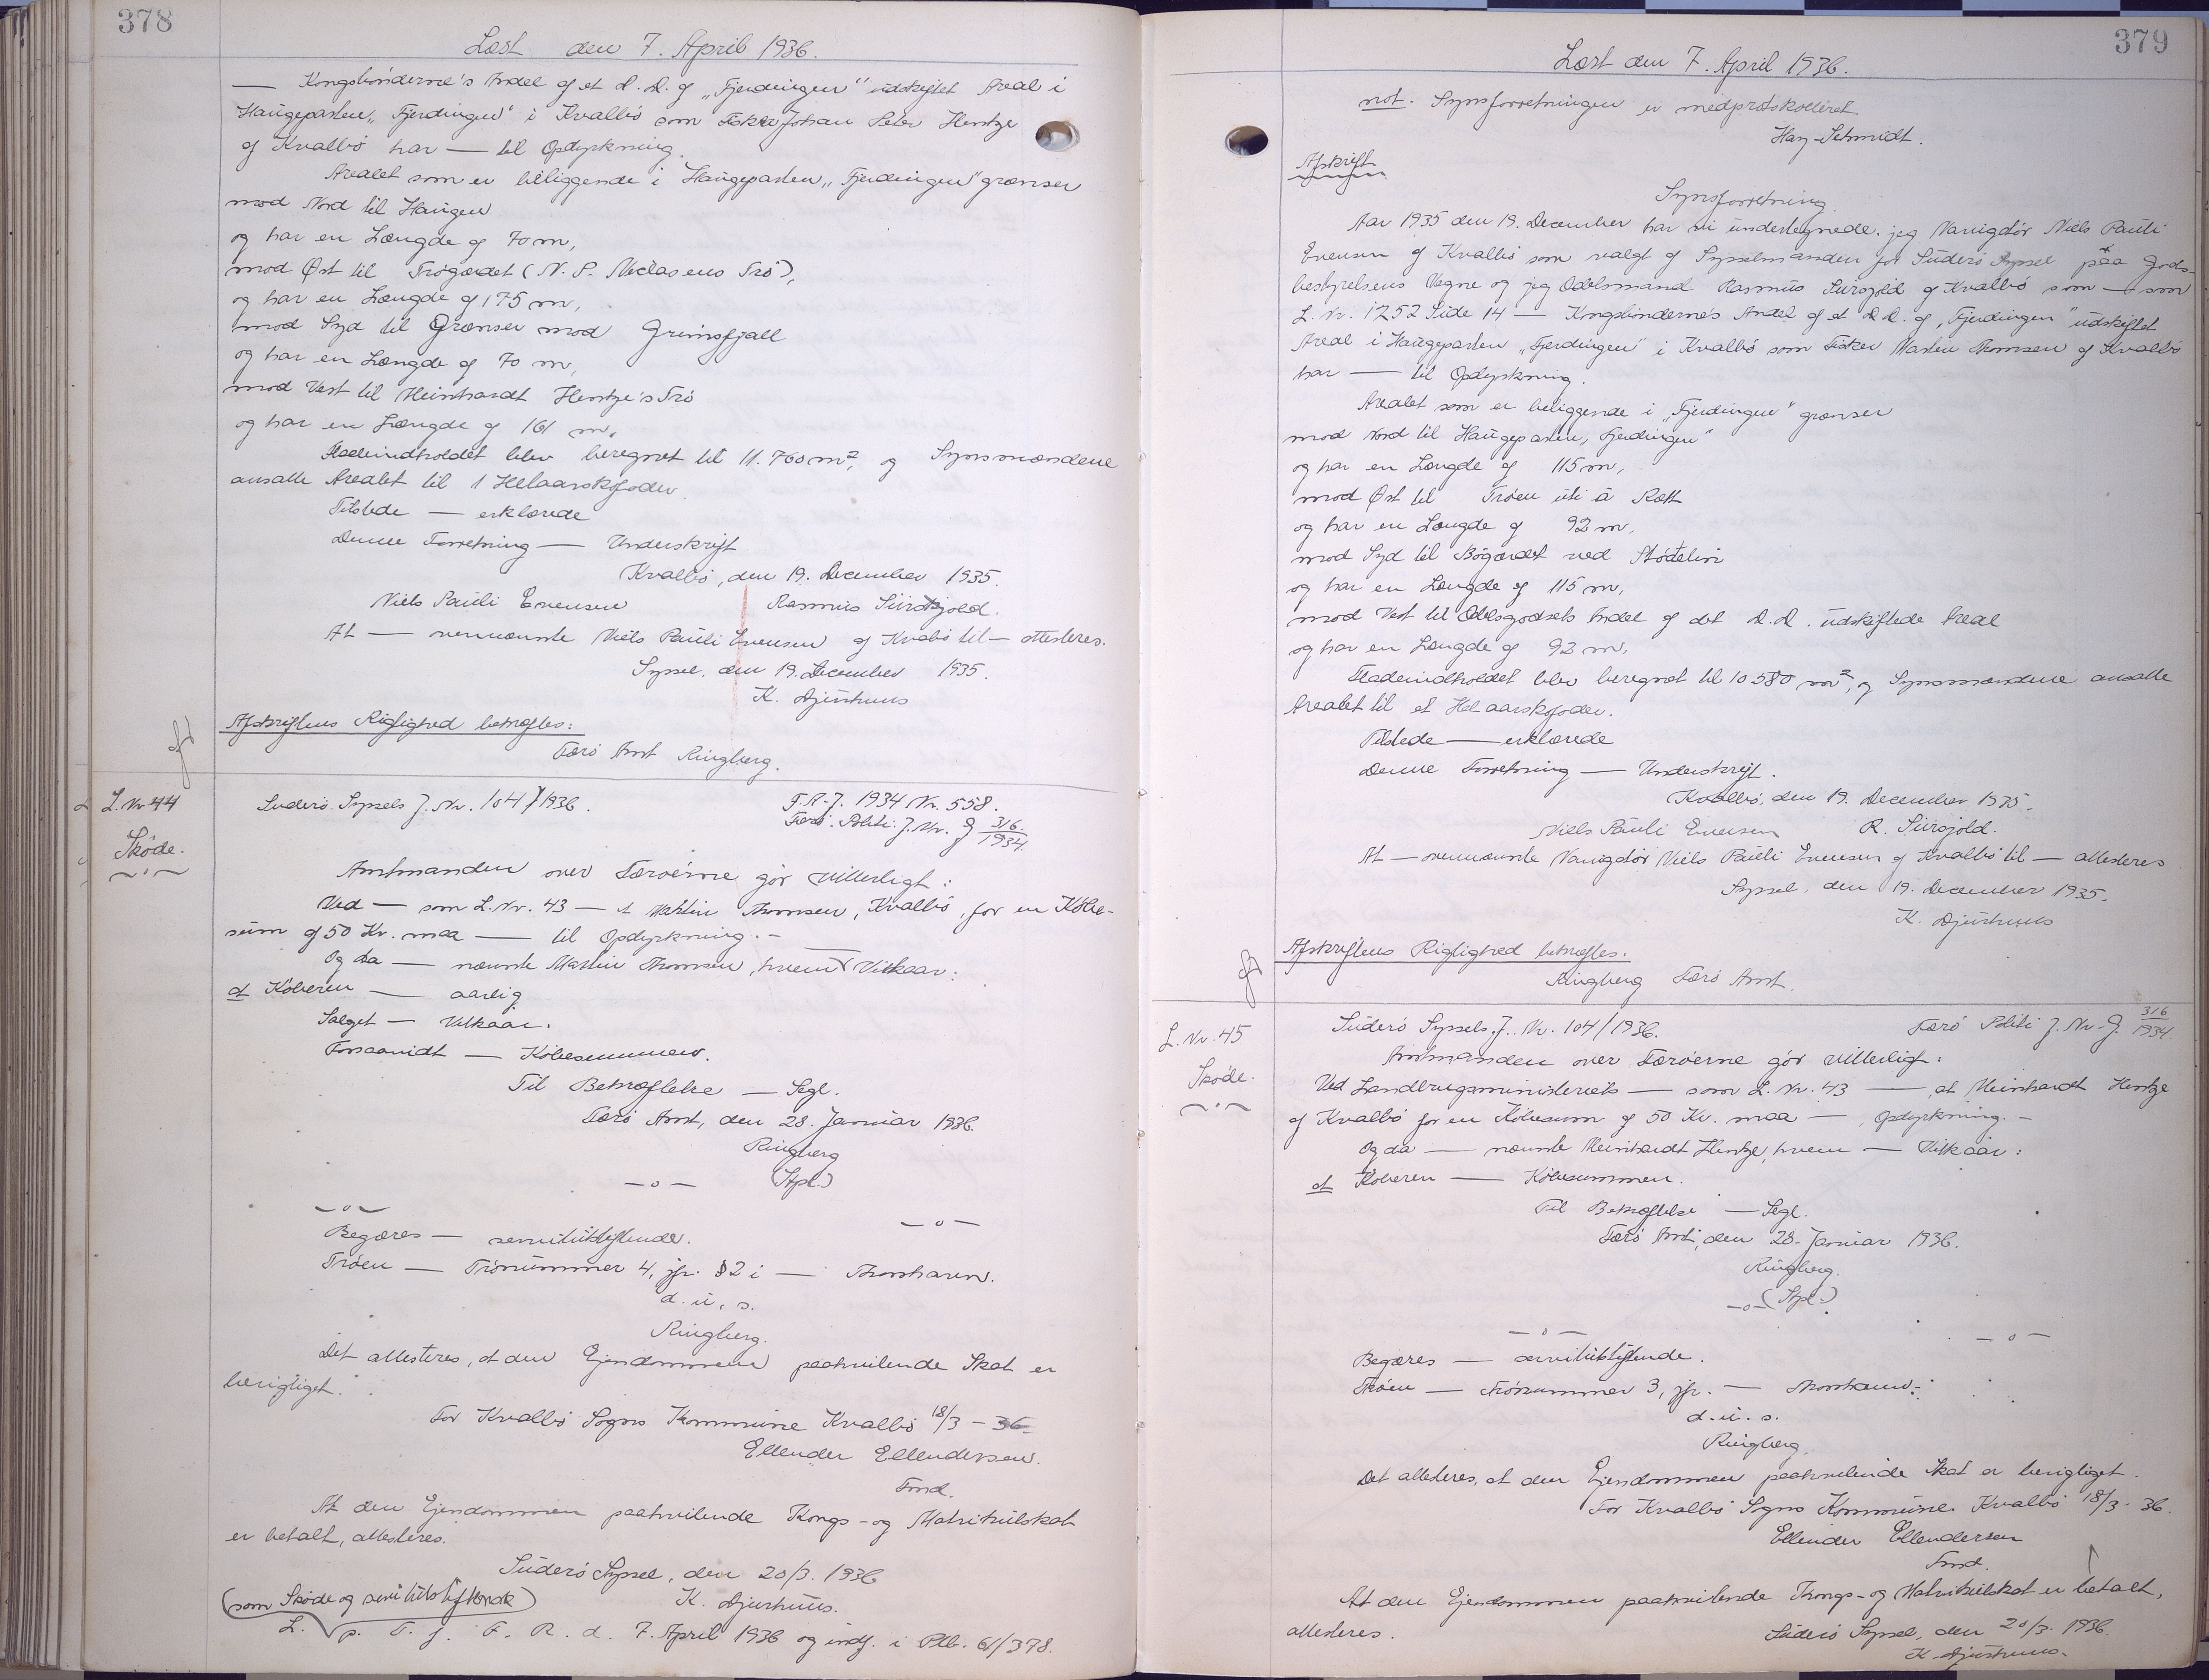 378
Læst den 7. April 1936.
— Kongsbønderne's Andel af et d. d. af „Fjerdingen" udskiftet Areal i
Haugeparten „Fjerdingen" i Kvalbø som Fisker Johan Peter Hentze
af Kvalbø har — til Opdyrkning.
Arealet som er beliggende i Haugeparten „Fjerdingen" grænser
mod Nord til Haugen
og har en Længde af 70 m,
mod Øst til Trøgærdet (N. P. Niclasens Trø),
og har en Længde af 175 m,
mod Syd til Grænser mod Grimsfjall
og har en Længde af 70 m,
mod Vest til Meinhardt Hentze's Trø
og har en Længde af 161 m.
Fladeindholdet blev beregnet til 11.760 m², og Synsmændene
ansatte Arealet til 1 Helaarskofoder.
Tilstede — erklærede
Denne Forretning — Underskrift
Kvalbø, den 19. December 1935.
Niels Pauli Evensen Rasmus Suirdjold.
At — nævnte Niels Pauli Evensen af Kvalbø til — attesteres.
Syssel, den 19. December 1935.
K. Djurhuus
Afskriftens Rigtighed bekræftes:
Færø Amt Ringberg.
L. Nr 44
Skøde.
Suderø Syssels J. Nr. 104/1936.
F.A-J. 1934 Nr. 558.
Færø Politi J. Nr. J 316/1934.
Amtmanden over Færøerne gør vitterligt:
Ved — som L. Nr. 43 — at Martin Thomsen, Kvalbø, for en Købe-
sum af 50 Kr. maa — til Opdyrkning. —
Og da — nævnte Martin Thomsen, hvem — Vilkaar:
at Køberen — aarlig
Salget — Vilkaar.
Forsaavidt — Købesummen.
Til Bekræftelse — Segl.
Færø Amt, den 28. Januar 1936.
Ringberg
—o— (Stpl.)
—o— —o—
Begæres — servitutstiftende.
Trøen — Trønummer 4, jfr. §2 i — Thorshavn.
d. u. s.
Ringberg.
Det attesteres, at den Ejendommen paahvilende Skat er
berigtiget.
For Kvalbø Sogns Kommune Kvalbø 18/3 - 36
Ellender Ellendersen.
Fmd.
At den Ejendommen paahvilende Kongs- og Matrikulskat
er betalt, attesteres.
Suderø Syssel, den 20/3. 1936
K. Djurhuus.
(som Skøde og servitutstiftende)
L. p. T. f. F. R. d. 7. April 1936 og indf. i Ptb. 61/378.
379
Læst den 7. April 1936.
not. Synsforretningen er medprotokolleret
Hay-Schmidt.
Afskrift
Synsforretning.
Aar 1935 den 19. December har vi undertegnede, jeg Varigdør Niels Pauli
Evensen af Kvalbø som valgt af Sysselmanden for Suderø Syssel paa Gods-
bestyrelsens Vegne og jeg Odelsmand Rasmus Suirgjold af Kvalbø som — som
L. Nr. 1252 Side 14 — Kongsbøndernes Andel af et d. d. af „Fjerdingen" udskiftet
Areal i Haugeparten „Fjerdingen" i Kvalbø som Fisker Martin Thomsen af Kvalbø
har — til Opdyrkning.
Arealet som er beliggende i „Fjerdingen" grænser
mod Nord til Haugeparten „Fjerdingen"
og har en Længde af 115 m,
mod Øst til Trøen uti á Rætt
og har en Længde af 92 m,
mod Syd til Bøgærdet ved Stødlin
og har en Længde af 115 m,
mod Vest til Odelsgodsets Andel af det d. d. udskiftede Areal
og har en Længde af 92 m,
Fladeindholdet blev beregnet til 10580 m², og Synsmændene ansatte
Arealet til et Helaarskofoder.
Tilstede — erklærede
Denne Forretning — Underskrift.
Kvalbø, den 19. December 1935.
Niels Pauli Evensen R. Suirgjold.
At — ovennævnte Varigdør Niels Pauli Evensen af Kvalbø til — attesteres
Syssel, den 19. December 1935.
K. Djurhuus
Afskriftens Rigtighed bekræftes.
Ringberg Færø Amt.
L. Nr. 45
Skøde.
Suderø Syssels J. Nr. 104/1936.
Færø Politi J. Nr. J. 316/1934.
Amtmanden over Færøerne gør vitterligt:
Ved Landbrugsministeriets — som L. Nr. 43 — at Meinhardt Hentze
af Kvalbø for en Købesum af 50 Kr. maa — Opdyrkning. —
Og da — nævnte Meinhardt Hentze, hvem — Vilkaar:
at Køberen — Købesummen.
Til Bekræftelse — Segl.
Færø Amt, den 28. Januar 1936.
Ringberg.
—o— (Stpl.)
—o— —o—
Begæres — servitutstiftende.
Trøen — Trønummer 3, jfr. — Thorshavn.
d. u. s.
Ringberg.
Det attesteres, at den Ejendommen paahvilende Skat er berigtiget.
For Kvalbø Sogns Kommune Kvalbø 18/3 - 36.
Ellender Ellendersen
Fmd.
At den Ejendommen paahvilende Kongs- og Matrikulskat er betalt,
attesteres.
Suderø Syssel, den 20/3. 1936.
K. Djurhuus.